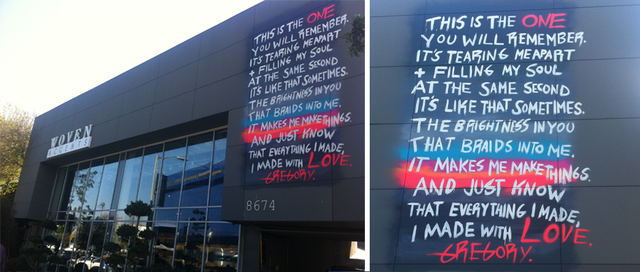 THIS IS THE ONE
YOU WILL REMEMBER.
IT'S TEARING MEAPART
+ FILLING MY SOUL
AT THE SAME SECOND
IT'S LIKE THAT SOMETIMES.
THE BRIGHTNESS IN YOU
THAT BRAIDS INTO ME.
IT MAKES ME MAKE THINGS.
AND JUST KNOW
THAT EVERYTHING I MADE,
I MADE WITH LOVE.
GREGORY.
WOVEN
8674
THIS IS THE ONE
YOU WILL REMEMBER.
IT'S TEARING MEAPART
+ FILLING MY SOUL
AT THE SAME SECOND
IT'S LIKE THAT SOMETIMES.
THE BRIGHTNESS IN YOU
THAT BRAIDS INTO ME.
IT MAKES ME MAKE THINGS.
AND JUST KNOW
THAT EVERYTHING I MADE,
I MADE WITH LOVE.
GREGORY.